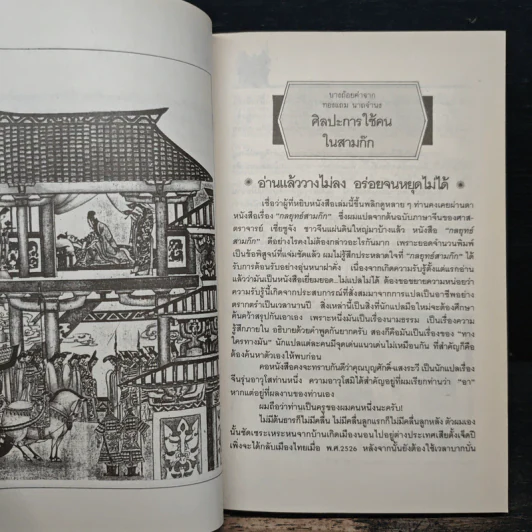 บางถ้อยคำจาก
ทองแถม นาถจำนง
ศิลปะการใช้คน
ในสามก๊ก
อ่านแล้ววางไม่ลง อร่อยจนหยุดไม่ได้
เชื่อว่าผู้ที่หยิบหนังสือเล่มนี้ขึ้นพลิกดูหลาย ๆ ท่านคงเคยผ่านตา
หนังสือเรื่อง "กลยุทธ์สามก๊ก" ซึ่งผมแปลจากต้นฉบับภาษาจีนของศาส-
ตราจารย์ เซี่ยชูจัง ชาวจีนแผ่นดินใหญ่มาบ้างแล้ว หนังสือ "กลยุทธ์
สามก๊ก" ดีอย่างไรคงไม่ต้องกล่าวอะไรกันมาก เพราะยอดจำนวนพิมพ์
เป็นข้อพิสูจน์ที่แจ่มชัดแล้ว ผมไม่รู้สึกประหลาดใจที่ "กลยุทธ์สามก๊ก" ได้
รับการต้อนรับอย่างอุ่นหนาฝาคั่ง เนื่องจากเกิดความรับรู้ตั้งแต่แรกอ่าน
แล้วว่ามันเป็นหนังสือเยี่ยมยอด..ไม่แปลไม่ได้ ต้องขอขยายความหน่อยว่า
ความรับรู้นี้เกิดจากประสบการณ์ที่สั่งสมมาจากการแปลเป็นอาชีพอย่าง
ตรากตรำเป็นเวลานานปี สิ่งเหล่านี้เป็นสิ่งที่นักแปลมือใหม่จะต้องศึกษา
ค้นคว้าสรุปกันเอาเอง เพราะหนึ่งมันเป็นเรื่องนามธรรม เป็นเรื่องความ
รู้สึกภายใน อธิบายด้วยคำพูดกันยากครับ สองก็คือมันเป็นเรื่องของ "ทาง
ใครทางมัน" นักแปลแต่ละคนมีจุดเด่นแนวเด่นไม่เหมือนกัน ที่สำคัญก็คือ
ต้องค้นหาตัวเองให้พบก่อน
คอหนังสือคงจะทราบกันดีว่าคุณบุญศักดิ์-แสงระวี เป็นนักแปลเรื่อง
จีนรุ่นอาวุโสท่านหนึ่ง ความอาวุโสมิได้สำคัญอยู่ที่ผมเรียกท่านว่า "อา"
หากแต่อยู่ที่ผลงานของท่านเอง
ผมถือว่าท่านเป็นครูของผมคนหนึ่งนะครับ!
ไม่มีต้นธารก็ไม่มีคลื่น ไม่มีคลื่นลูกแรกก็ไม่มีคลื่นลูกหลัง ตัวผมเอง
นั้นซัดเซระเหระหนจากบ้านเกิดเมืองนอนไปอยู่ต่างประเทศเสียตั้งเจ็ดปี
เพิ่งจะได้กลับเมืองไทยเมื่อ พ.ศ.2526 หลังจากนั้นยังต้องใช้เวลาบากบั่น